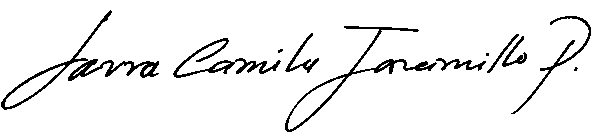 Laura Camila Jaramillo P.